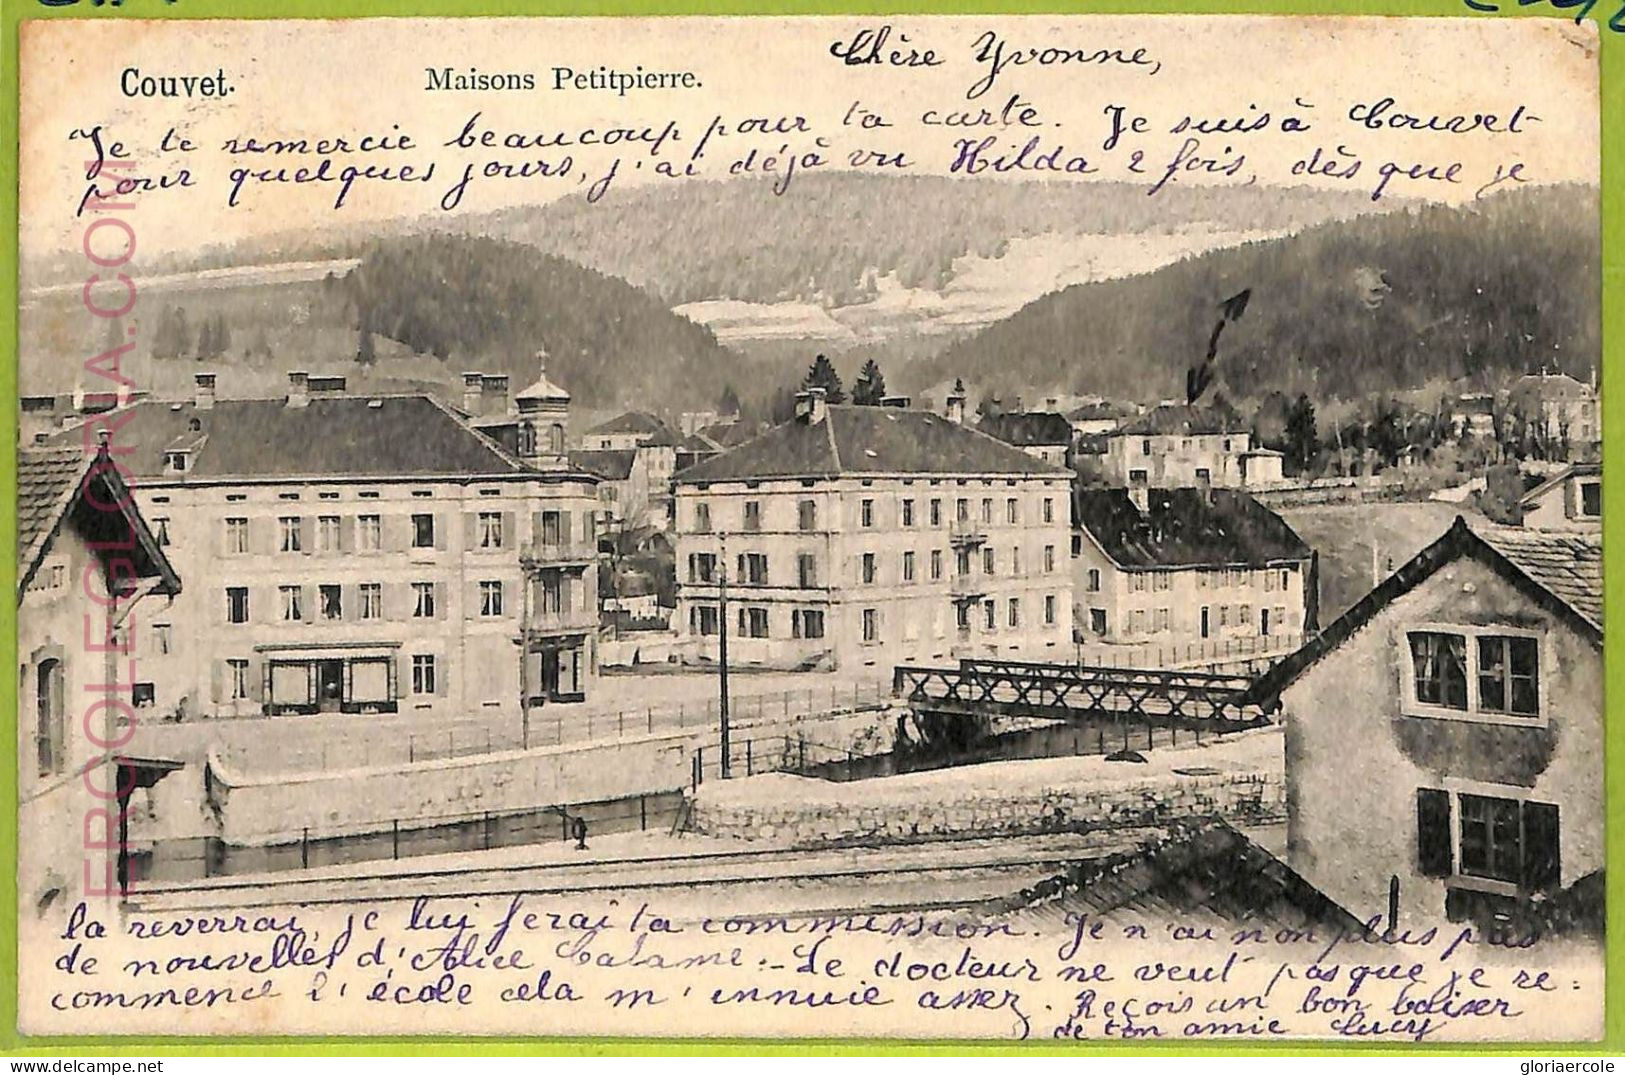 Couvet.
Maisons Petitpierre.
Chère Yvonne,
Je te remercie beaucoup pour ta carte. Je suis à Couvet
pour quelques jours, j'ai déjà vu Hilda 2 fois, dès que je
la reverrai, je lui ferai ta commission. Je n'ai non plus pas
de nouvelles d'Alice Calame. - Le docteur ne veut pas que je re=
commence l'école cela m'ennuie assez. Reçois un bon baiser
de ton amie Lucy
ERCOLEGLORIA.COM
gloriaercole